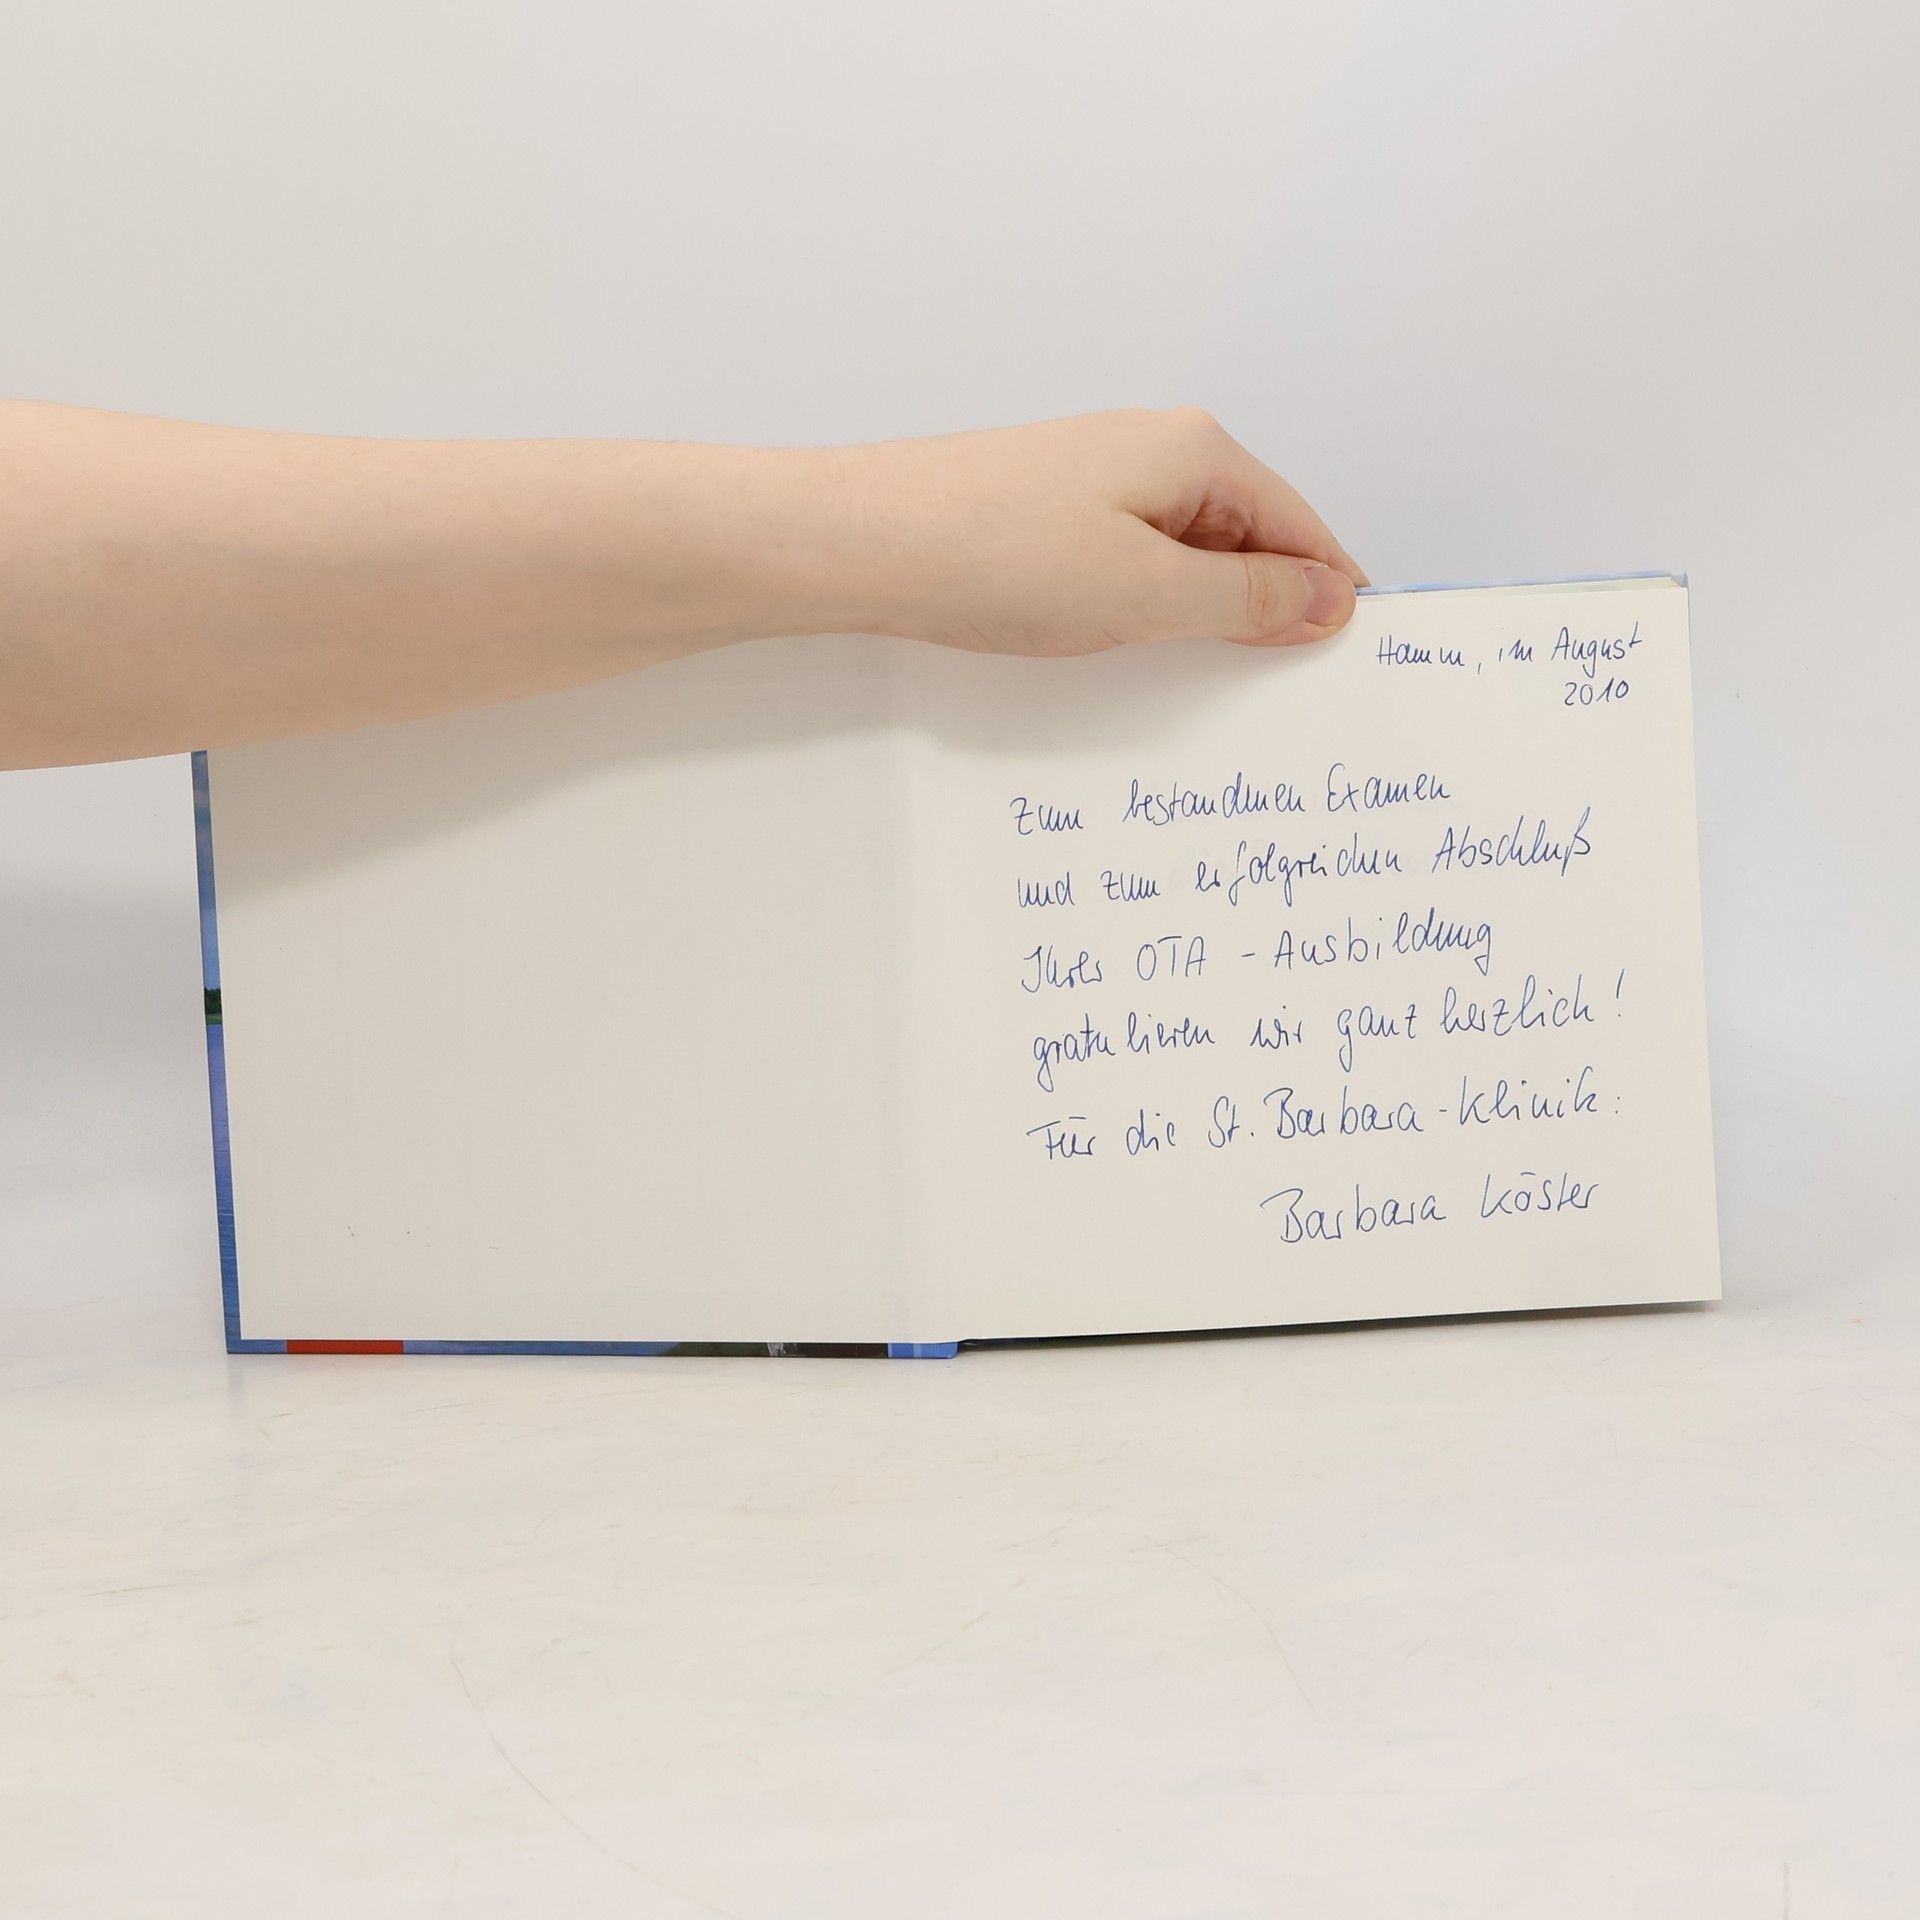 Hamm, im August
2010
Zum bestandenen Examen
und zum erfolgreichen Abschluß
Ihrer OTA - Ausbildung
gratulieren wir ganz herzlich!
Für die St. Barbara-Klinik:
Barbara Köster